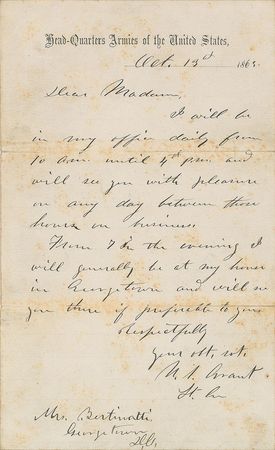 Head-Quarters Armies of the United States,
Oct. 13th 1865
Dear Madam,
I will be
in my office daily from
10 a.m. until 4 p.m. and
will see you with pleasure
on any day between those
hours on business.
From 7 in the evening I
will generally be at my house
in Georgetown and will see
you there if preferable to you
Respectfully
your obt. svt.
U. S. Grant
Lt. Gn
Mrs. Bertinatti
Georgetown
D.C.